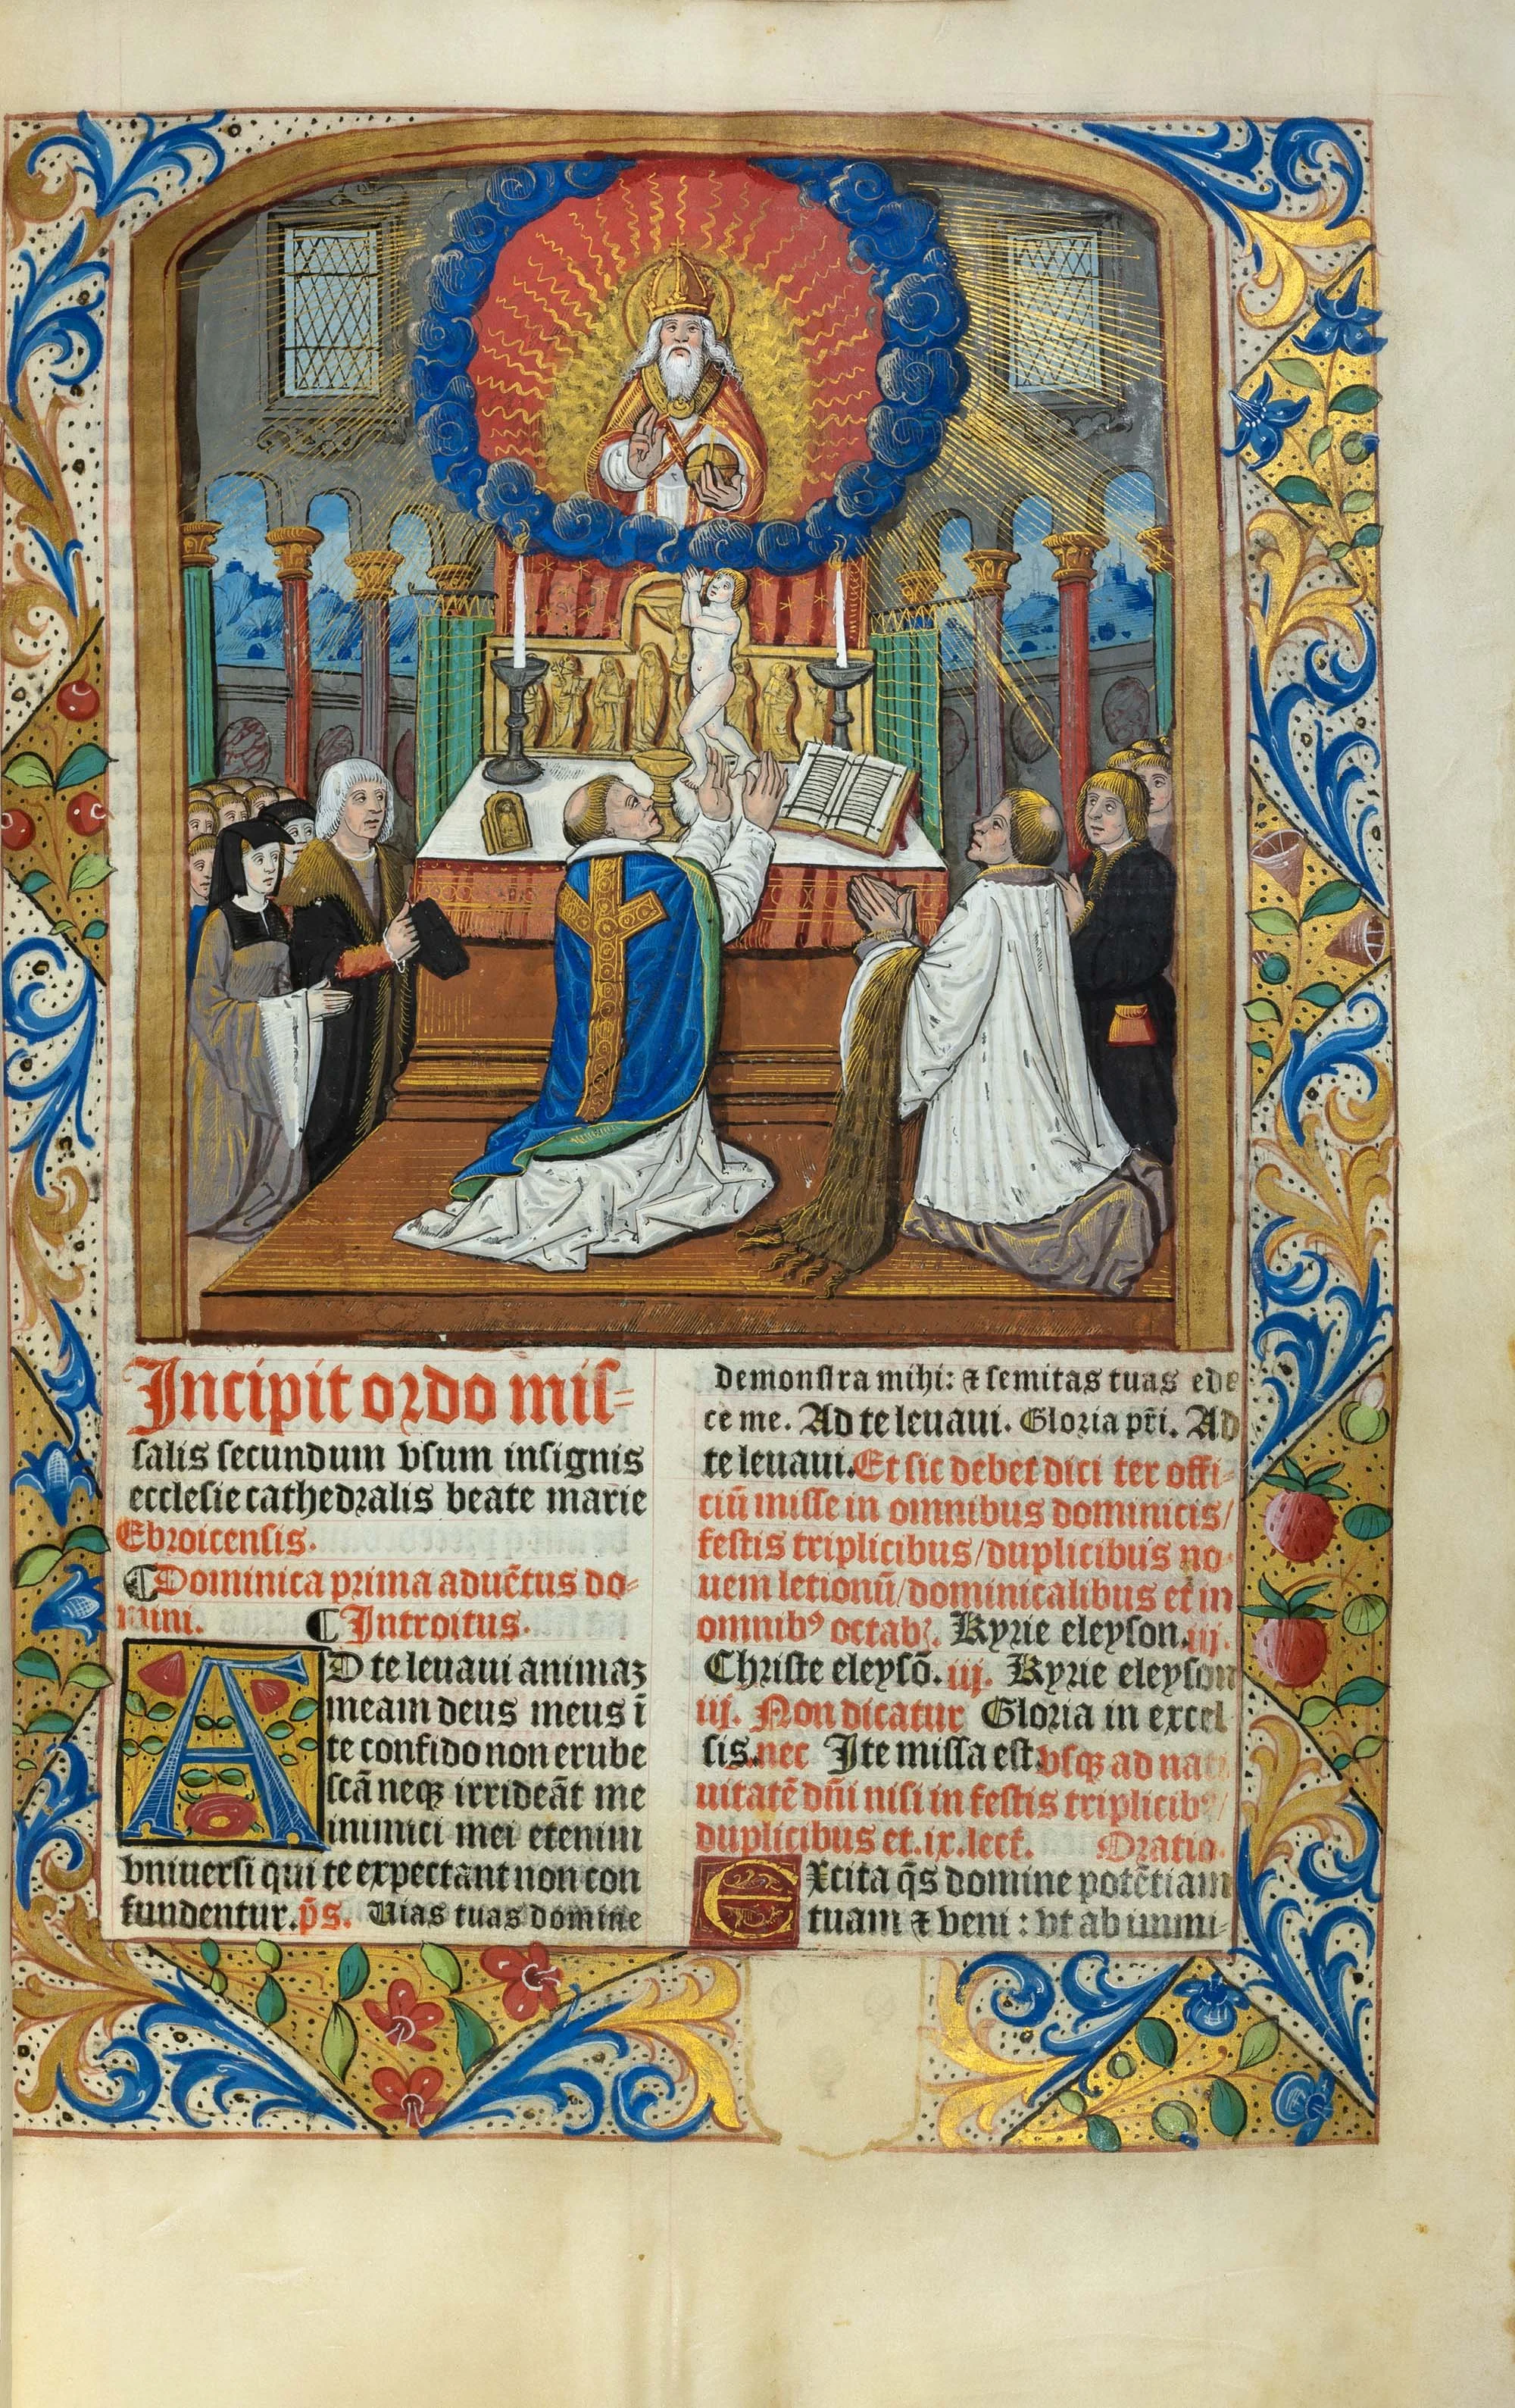 Incipit ordo mis-
salis secundum vsum insignis
ecclesie cathedralis beate marie
Ebroicensis.
¶Dominica prima aduẽtus do-
mini. ¶Introitus.
AD te leuaui animaz
meam deus meus ĩ
te confido non erube
scã neqꝫ irrideãt me
inimici mei etenim
vniuersi qui te expectant non con
fundentur. p̃s. Uias tuas domine
demonstra mihi: ⁊ semitas tuas ede
ce me. Ad te leuaui. Gloria pr̃i. Ad
te leuaui. Et sic debet dici ter offi-
ciũ misse in omnibus dominicis/
festis triplicibus/duplicibus no-
uem letionũ/dominicalibus et in
omnibꝰ octab. Kyrie eleyson. iij.
Christe eleysõ. iij. Kyrie eleyson
iij. Non dicatur Gloria in excel
sis. nec Ite missa est. vsqꝫ ad nati
uitatẽ dñi nisi in festis triplicibꝰ/
duplicibus et .ix. lect̃. Oratio.
EXcita q̃s domine potẽtiam
tuam ⁊ veni: vt ab immi-